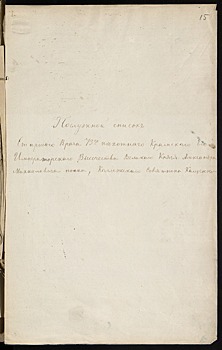 15
Послужной списокъ
Старшаго Врача 73го пѣхотнаго Крымскаго Его
Императорскаго Высочества Великаго Князя Александра
Михаиловича полка, Коллежскаго Совѣтника